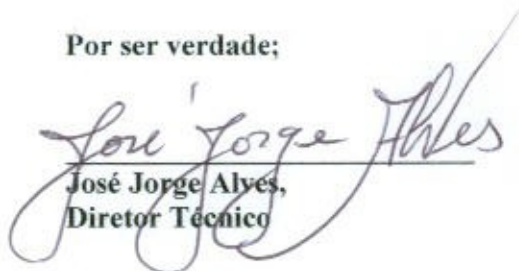 Por ser verdade;
José Jorge Alves
José Jorge Alves,
Diretor Técnico